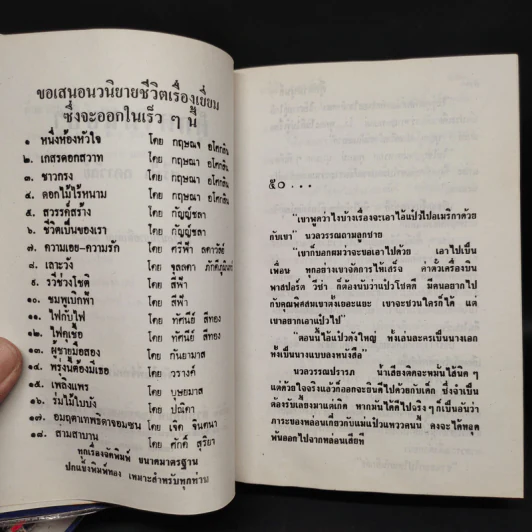 ขอเสนอนวนิยายชีวิตเรื่องเยี่ยม
ซึ่งจะออกในเร็ว ๆ นี้
๑ หนึ่งห้องหัวใจ โดย กฤษณา อโศกสิน
๒. เกสรดอกสวาท โดย กฤษณา อโศกสิน
๓. ชาวกรง โดย กฤษณา อโศกสิน
๔. ดอกไม้ไร้หนาม โดย กฤษณา อโศกสิน
๕. สวรรค์สร้าง โดย กัญญ์ชลา
๖. ชีวิตเป็นของเรา โดย กัญญ์ชลา
๗. ความเธอ-ความรัก โดย ศรีฟ้า ลดาวัลย์
๘. เลาะวัง โดย จุลลดา ภักดีภูมินทร์
๙. รวีช่วงโชติ โดย สีฟ้า
๑๐. ชมพูเบิกฟ้า โดย สีฟ้า
๑๑. ไฟกับไฟ โดย ทัศนีย์ สีทอง
๑๒. ไฟคุเชื้อ โดย ทัศนีย์ สีทอง
๑๓. ผู้ชายมือสอง โดย กันยามาส
๑๔. พรุ่งนี้ต้องมีเธอ โดย วรางค์
๑๕. เพลิงแพร โดย บุษยมาส
๑๖. ร่มไม้ใบบัง โดย ปณิตา
๑๗. อมฤตาเทพธิดาจอมซน โดย เจิด จินตนา
๑๘. สามสาบาน โดย ศักดิ์ สุริยา
ทุกเรื่องจัดพิมพ์ ขนาดมาตรฐาน
ปกแข็งพิมพ์ทอง เหมาะสำหรับทุกท่าน
๕๐ ...
"เขาพูดว่าไงบ้างเรื่องจะเอาไอ้นแป๋วไปอเมริกาด้วย
กับเขา" นวลวรรณถามลูกชาย
"เขาก็บอกผมว่าจะขอเอาไปด้วย เอาไปเป็น
เพื่อน ทุกอย่างเขาจัดการให้เสร็จ ค่าตั๋วเครื่องบิน
พาสปอร์ต วีซ่า ก็ต้องนับว่าแป๋วโชคดี มีคนอยากไป
กับคุณพิศสมเขาตั้งเยอะแยะ เขาจะชวนใครก็ได้ แต่
เขาอยากเอาแป๋วไป"
"ตอนนี้ไอ้แป๋วดังใหญ่ ทั้งเล่นละครเป็นนางเอก
ทั้งเป็นนางแบบลงหนังสือ"
นวลวรรณปรารภ น้ำเสียงดูจะหมั่นไส้นิด ๆ
แต่ด้วยใจจริงแล้วก็ออกจะยินดีไปด้วยกับเด็ก ซึ่งจำเป็น
ต้องรับเลี้ยงมาแต่เด็ก หากมันได้ดีไปจริง ๆ ก็เป็นอันว่า
ภาระของหล่อนเกี่ยวกับแม่แป๋วแหววคนนี้ คงจะได้หลุด
พ้นออกไปจากหล่อนเสียที